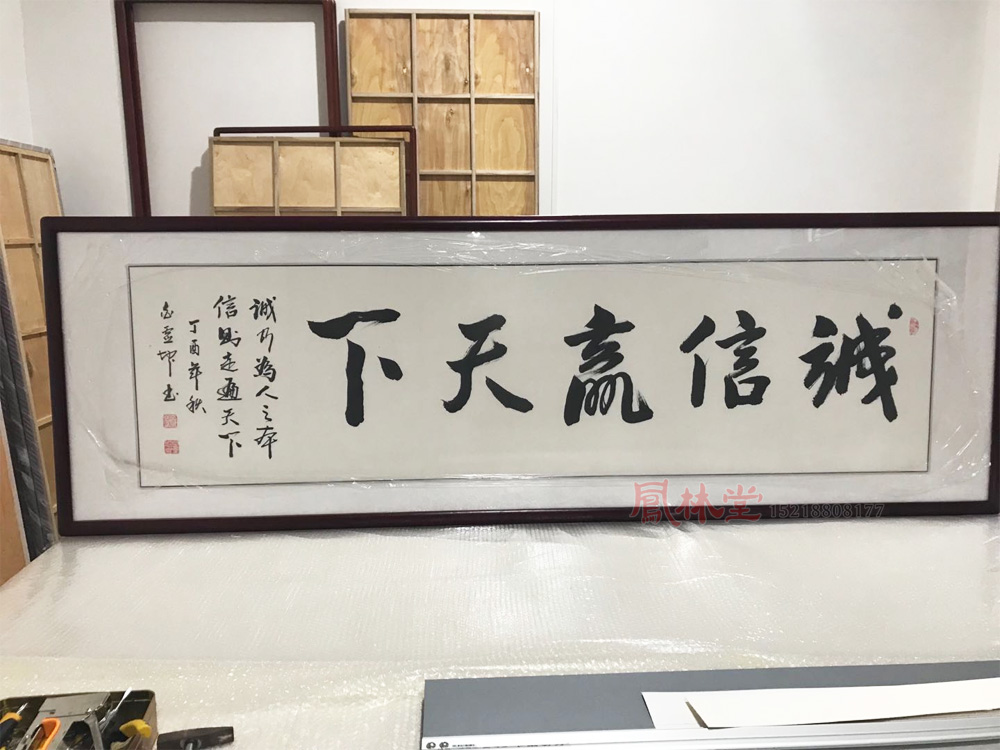 誠信贏天下
誠乃為人之本
信則走遍天下
丁酉年秋
書
鳳林堂 15218808177